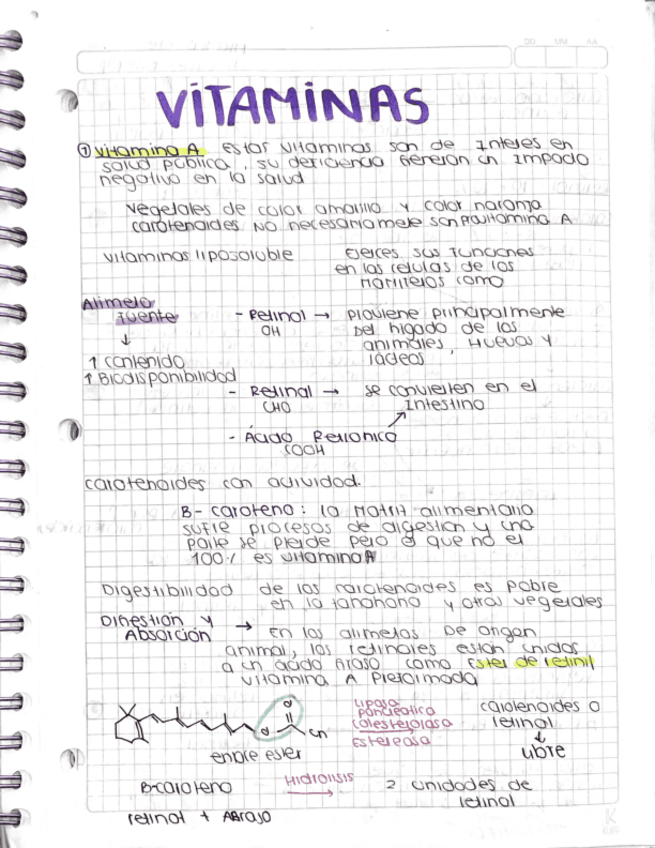 DD MM AA
VITAMINAS
① Vitamina A Estas vitaminas son de Interes en
salud pública, su deficiencia generan un Impacto
negativo en la salud
Vegetales de color amarillo y color naranja
carotenoides NO necesariamete son Provitamina A
vitaminas liposoluble
Ejerces sus funciones
en las celulas de los
mamiferos como
Alimeto
fuente
↓
↑ contenido
↑ Biodisponibilidad
- Retinol → proviene principalmente
OH
Del higado de los
animales, Huevos y
lácteos
- Retinal → se convierten en el
CHO
Intestino
- Ácido Retionico
COOH
carotenoides con actividad.
B- caroteno: la Matriz alimentaria
sufre procesos de digestión y una
parte se pierde pero el que no el
100% es vitamina A
Digestibilidad de los carotenoides es pobre
en la zanahoria y otros vegetales
Digestión y
Absorción
→ En los alimetos De origen
animal, los retinales están unidos
a un ácido graso como Ester de retinil
vitamina A Preformada
O
O
Cn
enlace ester
Lipasa
pancreatica
colesterolasa
estereasa
carotenoides o
retinol
↓
libre
B-caroteno
Hidrolisis
2 unidades de
retinol
retinol + AGraso